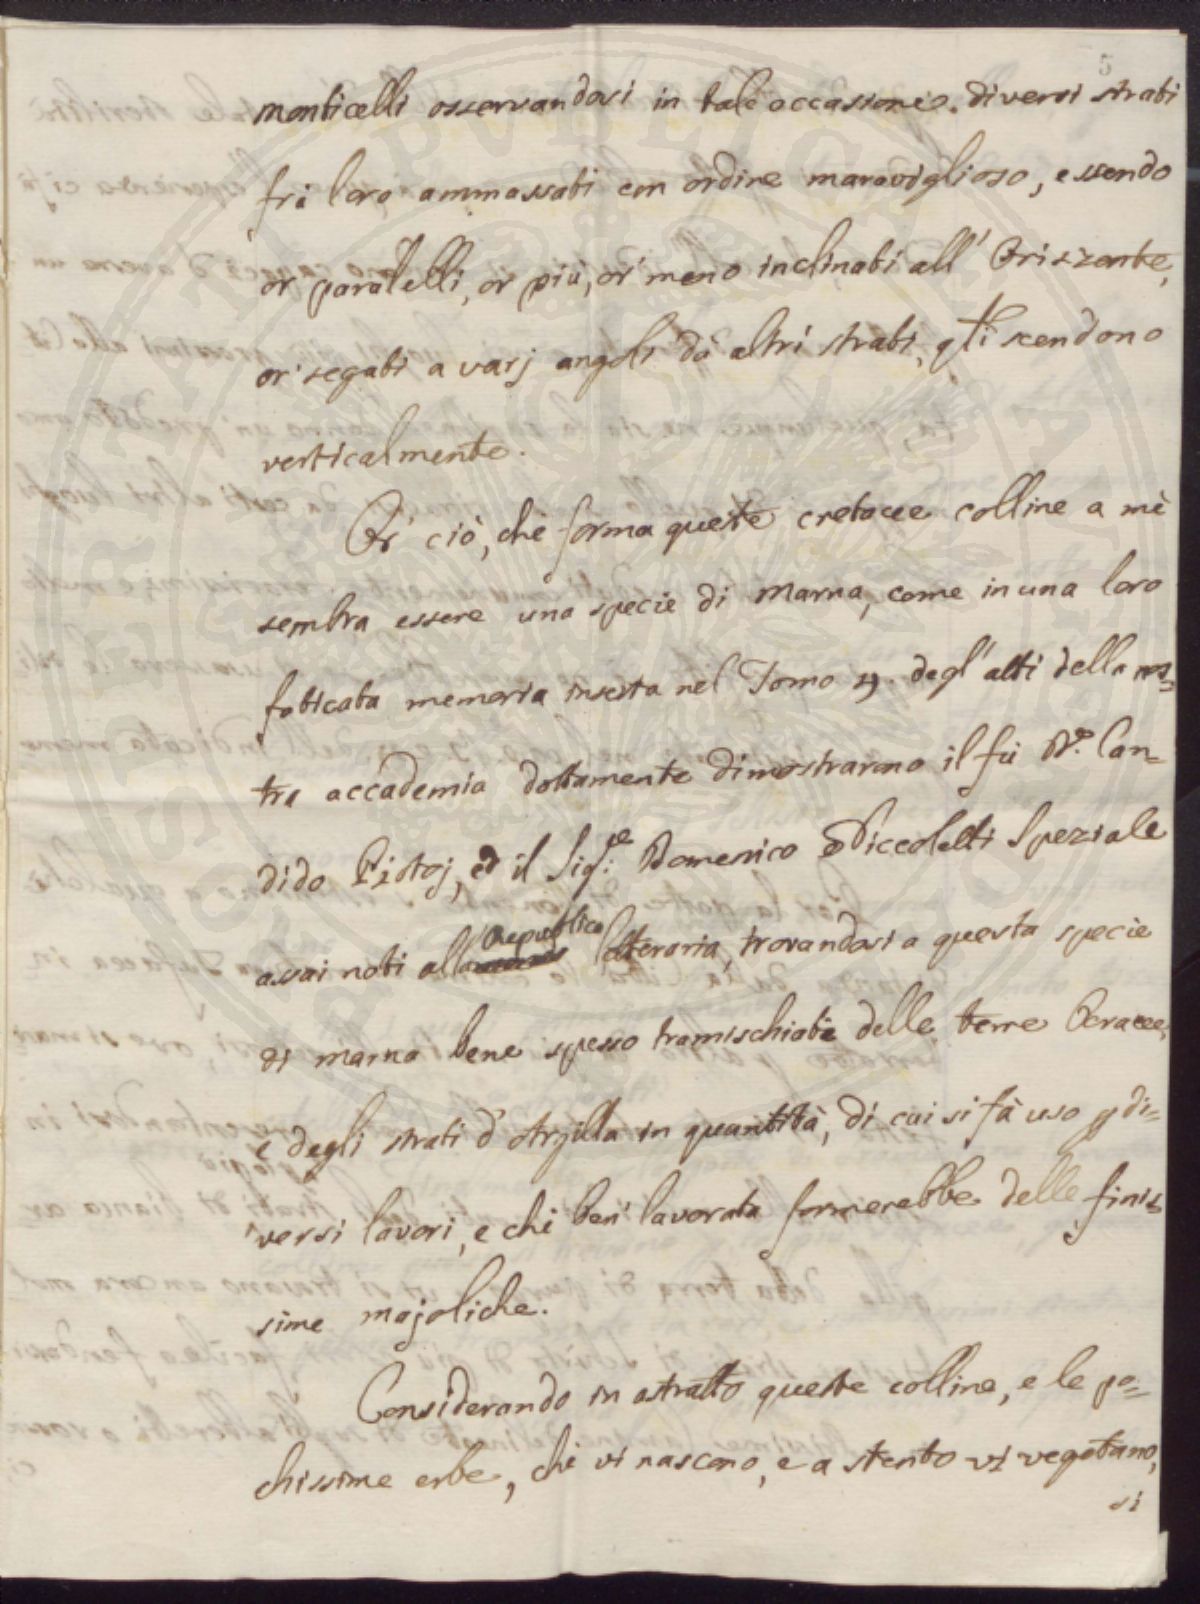 5
monticelli osservandosi in tale occasione diversi strati
frà loro ammassati con ordine maraviglioso, essendo
or' paralelli, or più, or' meno inclinati all' Orizzonte,
or' segati a varj angoli dà altri strati, qli scendono
verticalmente.
Or' ciò, chè forma queste cretacee colline a mè
sembra essere una specie di Marna, come in una loro
faticata memoria inserta nel Tomo 4. degl' atti della nos=
tra accademia dottamente dimostrarono il fù Dr. Can=
dido Pistoj, ed il Sigre: Domenico Niccoletti Speziale
assai noti alla Republica letteraria, trovandosi a questa specie
di marna bene spesso tramischiate delle terre Ocracee,
e degli strati d' Argilla in quantità, di cui si fà uso p di=
versi lavori, e chè ben' lavorata formerebbe delle finis
sime majoliche.
Considerando in astratto queste colline, e le po=
chissime erbe, chè vi nascono, e a stento vi vegetano,
si